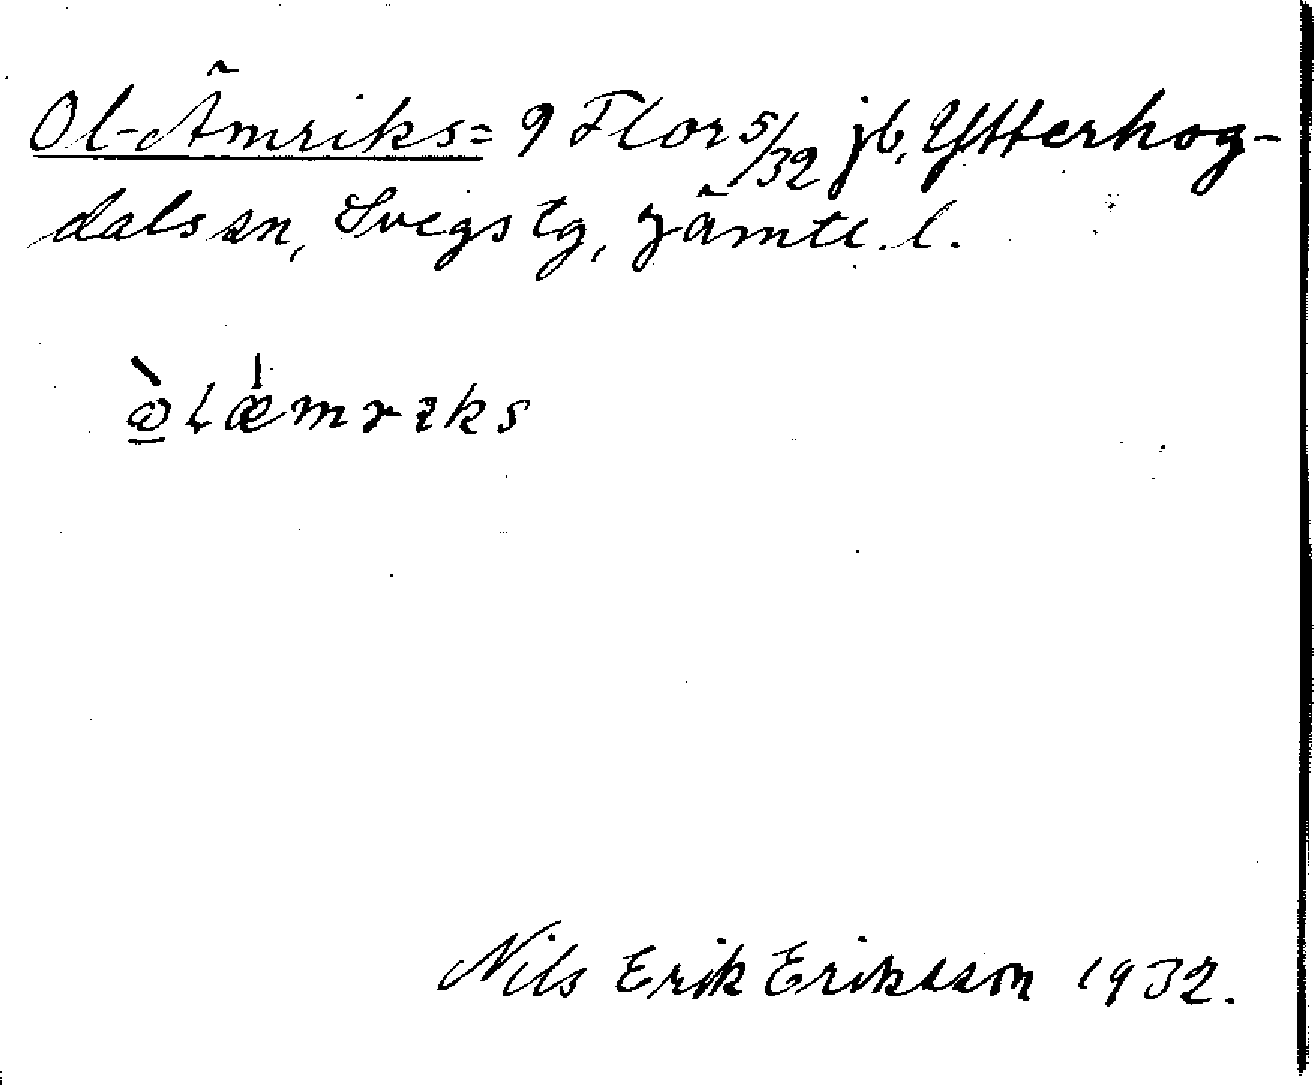 Ol-Ämriks= 9 Flor 5/32 jb, Ytterhog-
dals sn, Svegs tg, Jämtl. l.
ὰLǽmrıks
Nils Erik Eriksson 1932.